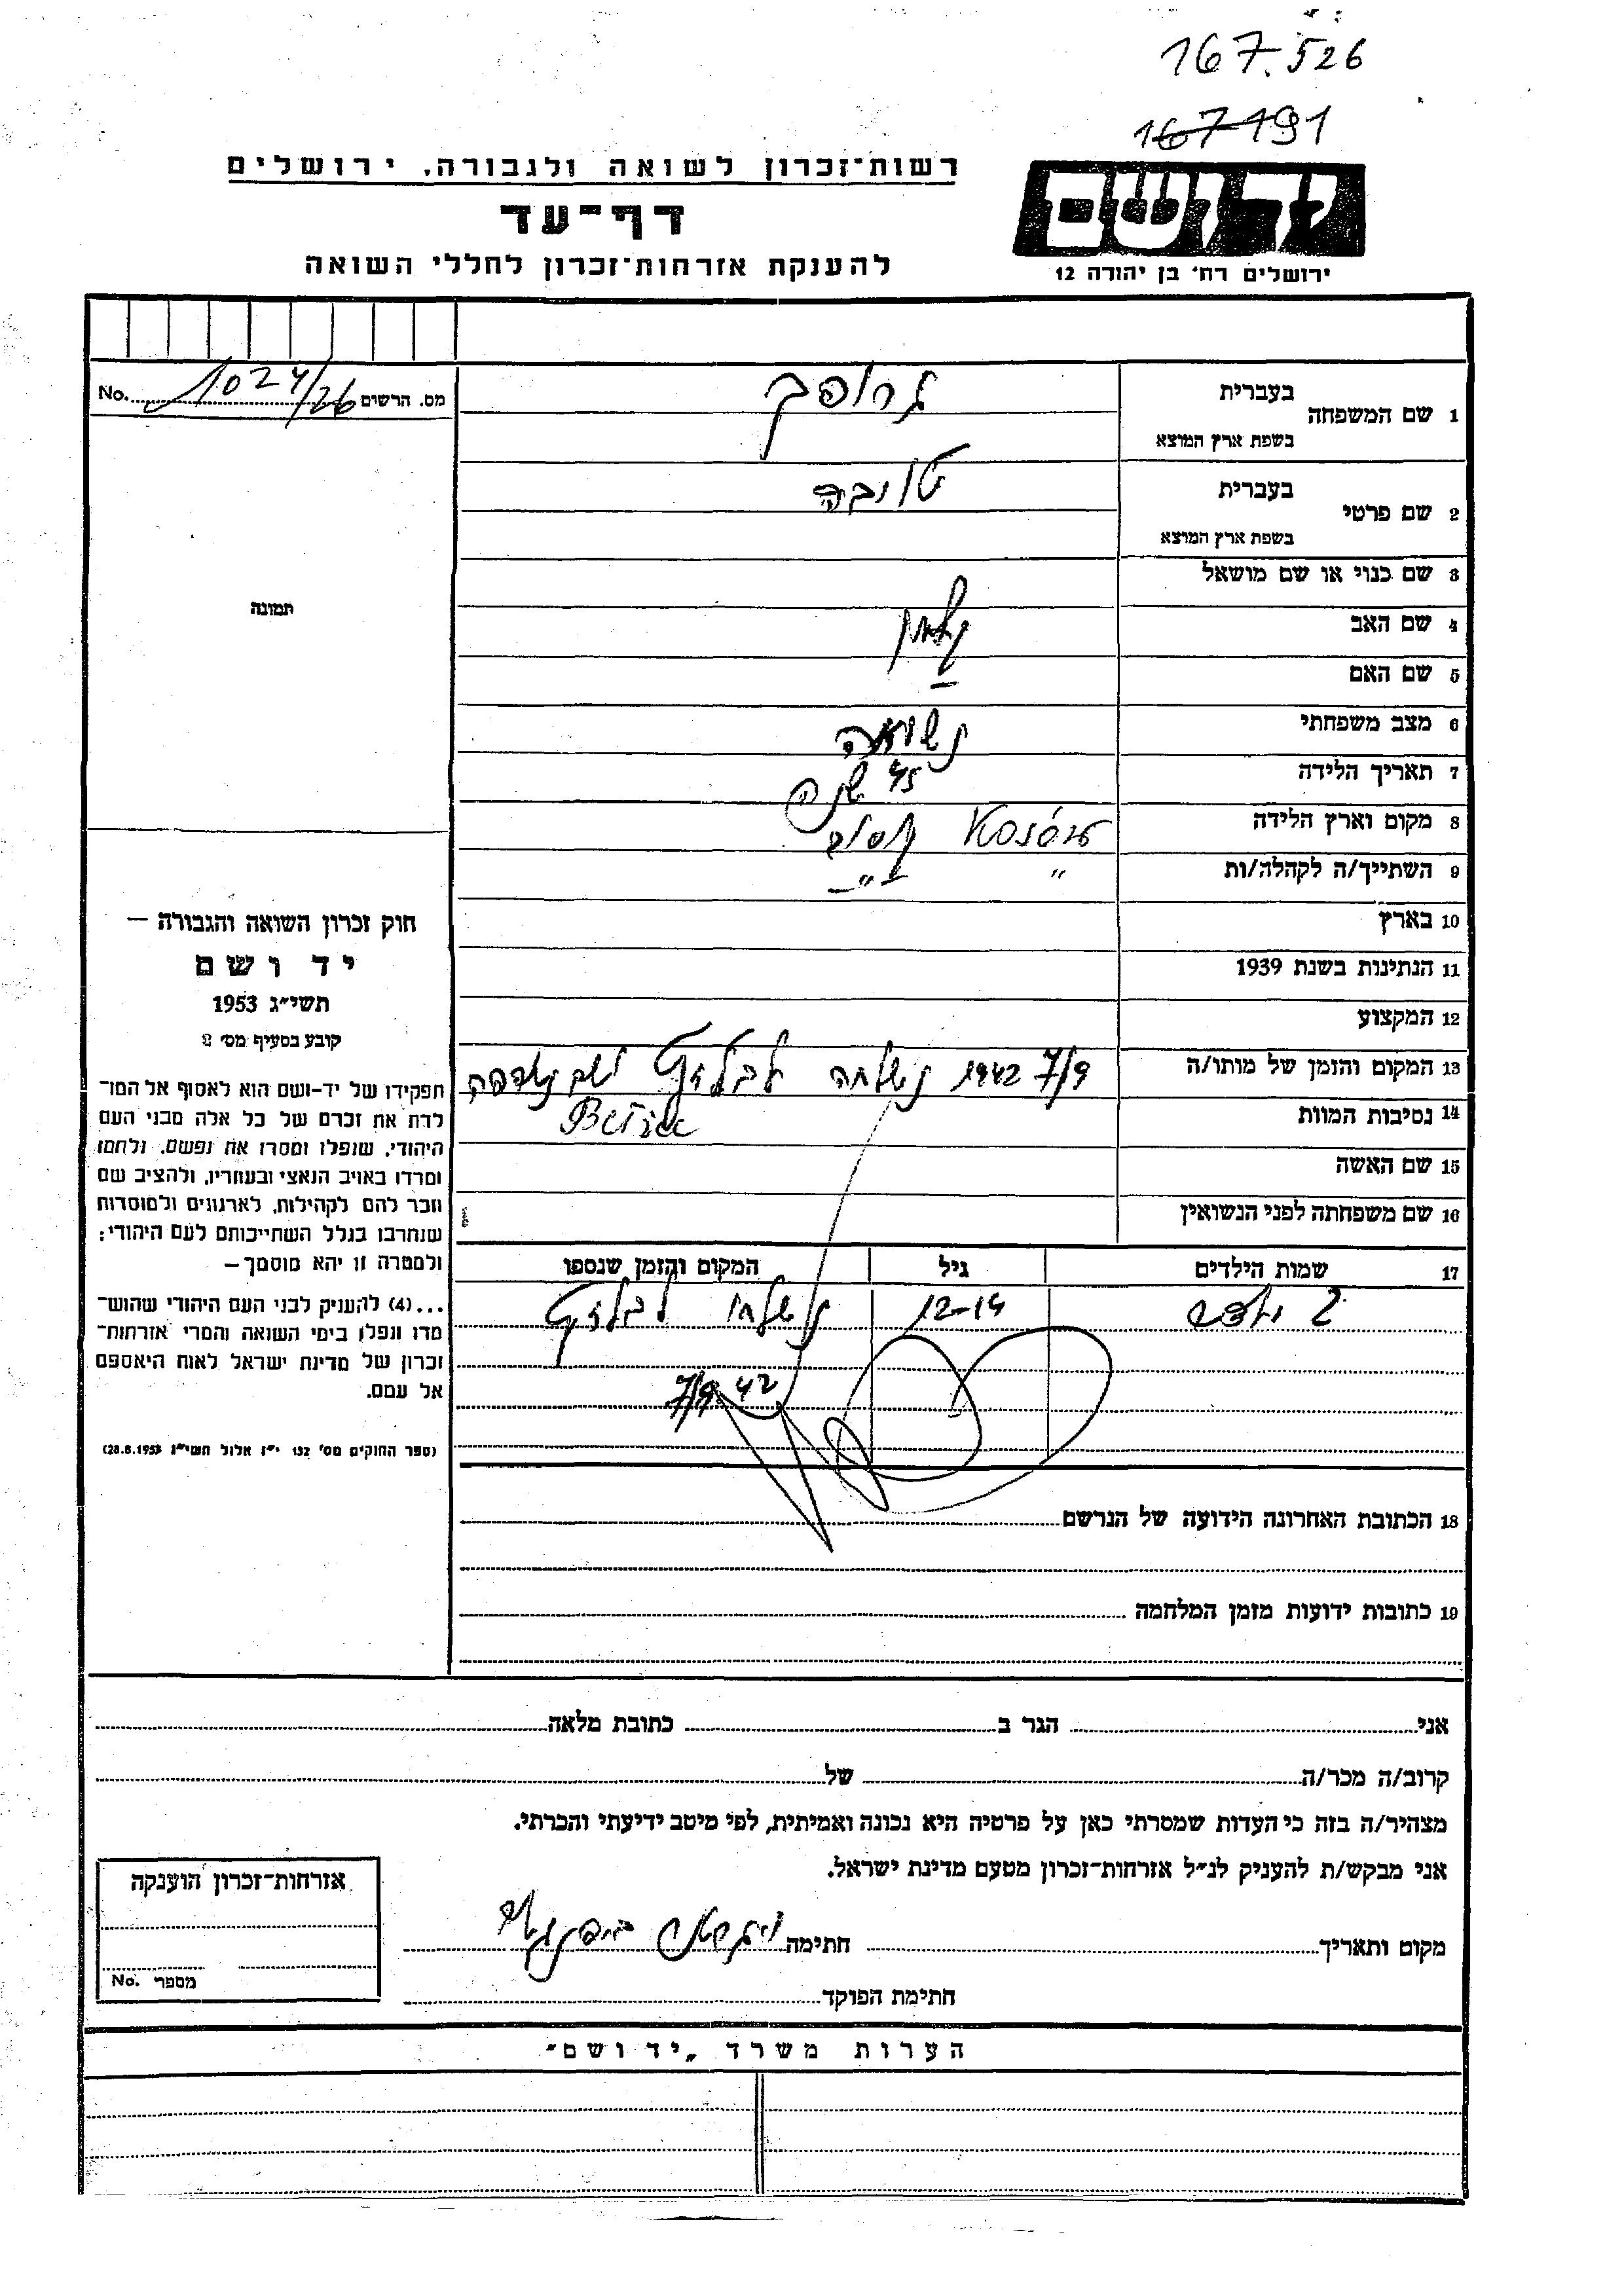 167.526
167191
רשות־זכרון לשואה ולגבורה, ירושלים
דף־עד
להענקת אזרחות־זכרון לחללי השואה
יד ושם
ירושלים רח' בן יהודה 12
מס. הרשים No. 1024/26
תמונה
חוק זכרון השואה והגבורה —
יד ושם
תשי״ג 1953
קובע בסעיף מס׳ 2
תפקידו של יד-ושם הוא לאסוף אל המו־
לדת את זכרם של כל אלה מבני העם
היהודי, שנפלו ומסרו את נפשם, נלחמו
ומרדו באויב הנאצי ובעוזריו, ולהציב שם
וזכר להם לקהילות, לארגונים ולמוסדות
שנחרבו בגלל השתייכותם לעם היהודי;
ולמטרה זו יהא מוסמך —
...(4) להעניק לבני העם היהודי שהוש־
מדו ונפלו בימי השואה והמרי אזרחות־
זכרון של מדינת ישראל לאות היאספם
אל עמם.
(ספר החוקים מס׳ 132 י״ז אלול תשי״ג 28.8.1953)
1 שם המשפחה בעברית
בשפת ארץ המוצא
2 שם פרטי בעברית טובה
בשפת ארץ המוצא
3 שם כנוי או שם מושאל
4 שם האב
5 שם האם —
6 מצב משפחתי נשואה
7 תאריך הלידה 45 שנה
8 מקום וארץ הלידה קוסוב
9 השתייך/ה לקהלה/ות " —"—
10 בארץ
11 הנתינות בשנת 1939
12 המקצוע
13 המקום והזמן של מותו/ה 7/9 1942 נשלחה לבלזץ ושם נשרפה
14 נסיבות המוות
15 שם האשה
16 שם משפחתה לפני הנשואין
17 שמות הילדים גיל המקום והזמן שנספו
2 ילדים 12-14 נשלחו לבלזץ
7/9 42
18 הכתובת האחרונה הידועה של הנרשם
19 כתובות ידועות מזמן המלחמה
אני הגר ב כתובת מלאה
קרוב/ה מכר/ה של
מצהיר/ה בזה כי העדות שמסרתי כאן על פרטיה היא נכונה ואמיתית, לפי מיטב ידיעתי והכרתי.
אני מבקש/ת להעניק לנ״ל אזרחות־זכרון מטעם מדינת ישראל.
מקום ותאריך חתימה
חתימת הפוקד
אזרחות־זכרון הוענקה
מספר No.
הערות משרד „יד ושם״